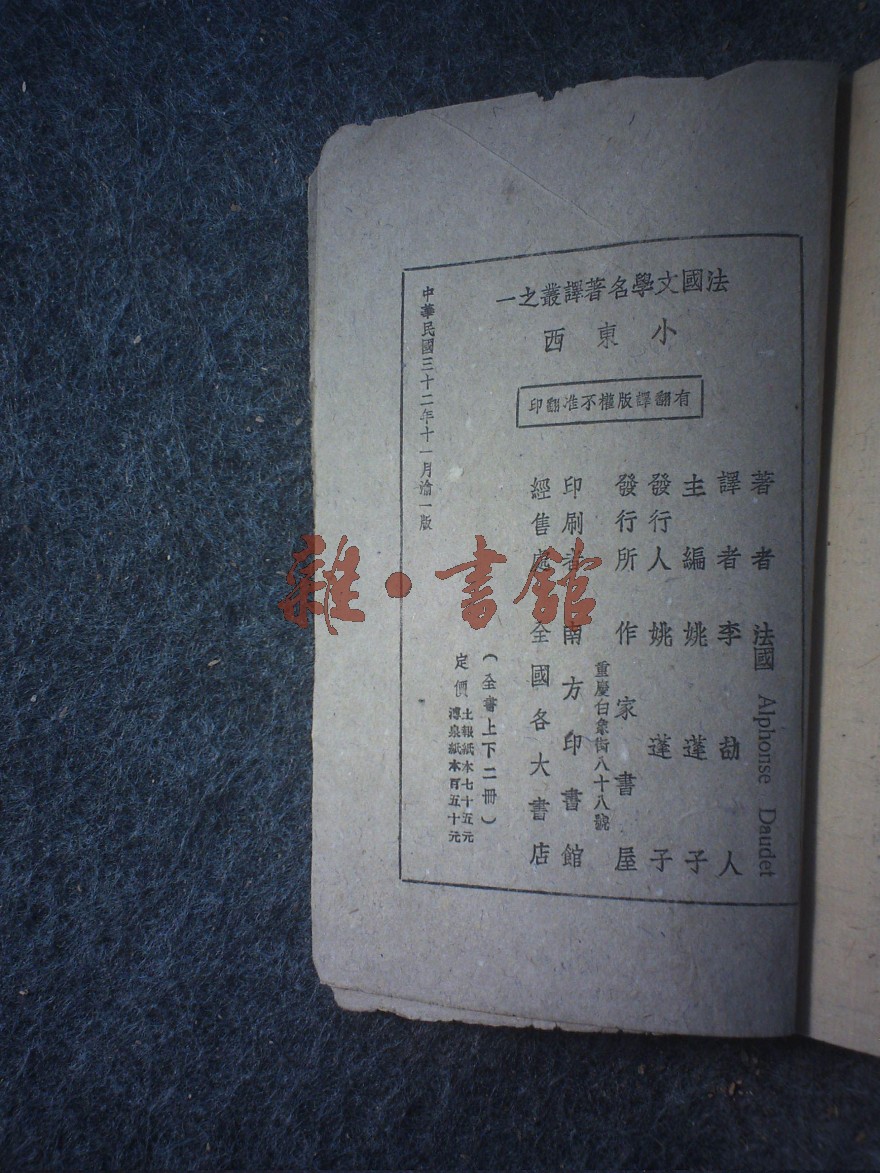 法國文學名著譯叢之一
小東西
有翻譯版權不准翻印
著者 法國 Alphonse Daudet
譯者 李劼人
主編 姚蓬子
發行人 姚蓬子
發行所 作家書屋
重慶白象街八十八號
印刷者 南方印書館
經售處 全國各大書店
(全書上下二冊)
定價 土報紙本七十五元
瀏泉紙本百五十元
中華民國三十二年十一月渝一版
雜·書館